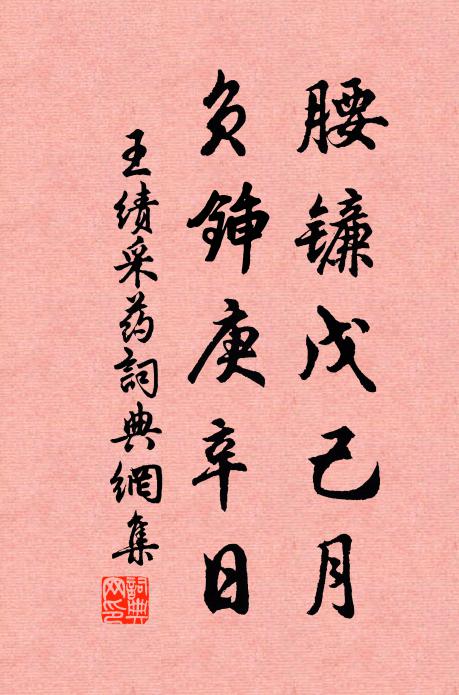 腰镰戊己月
负锸庚辛日
王绩采药詞典網集
詞典网印